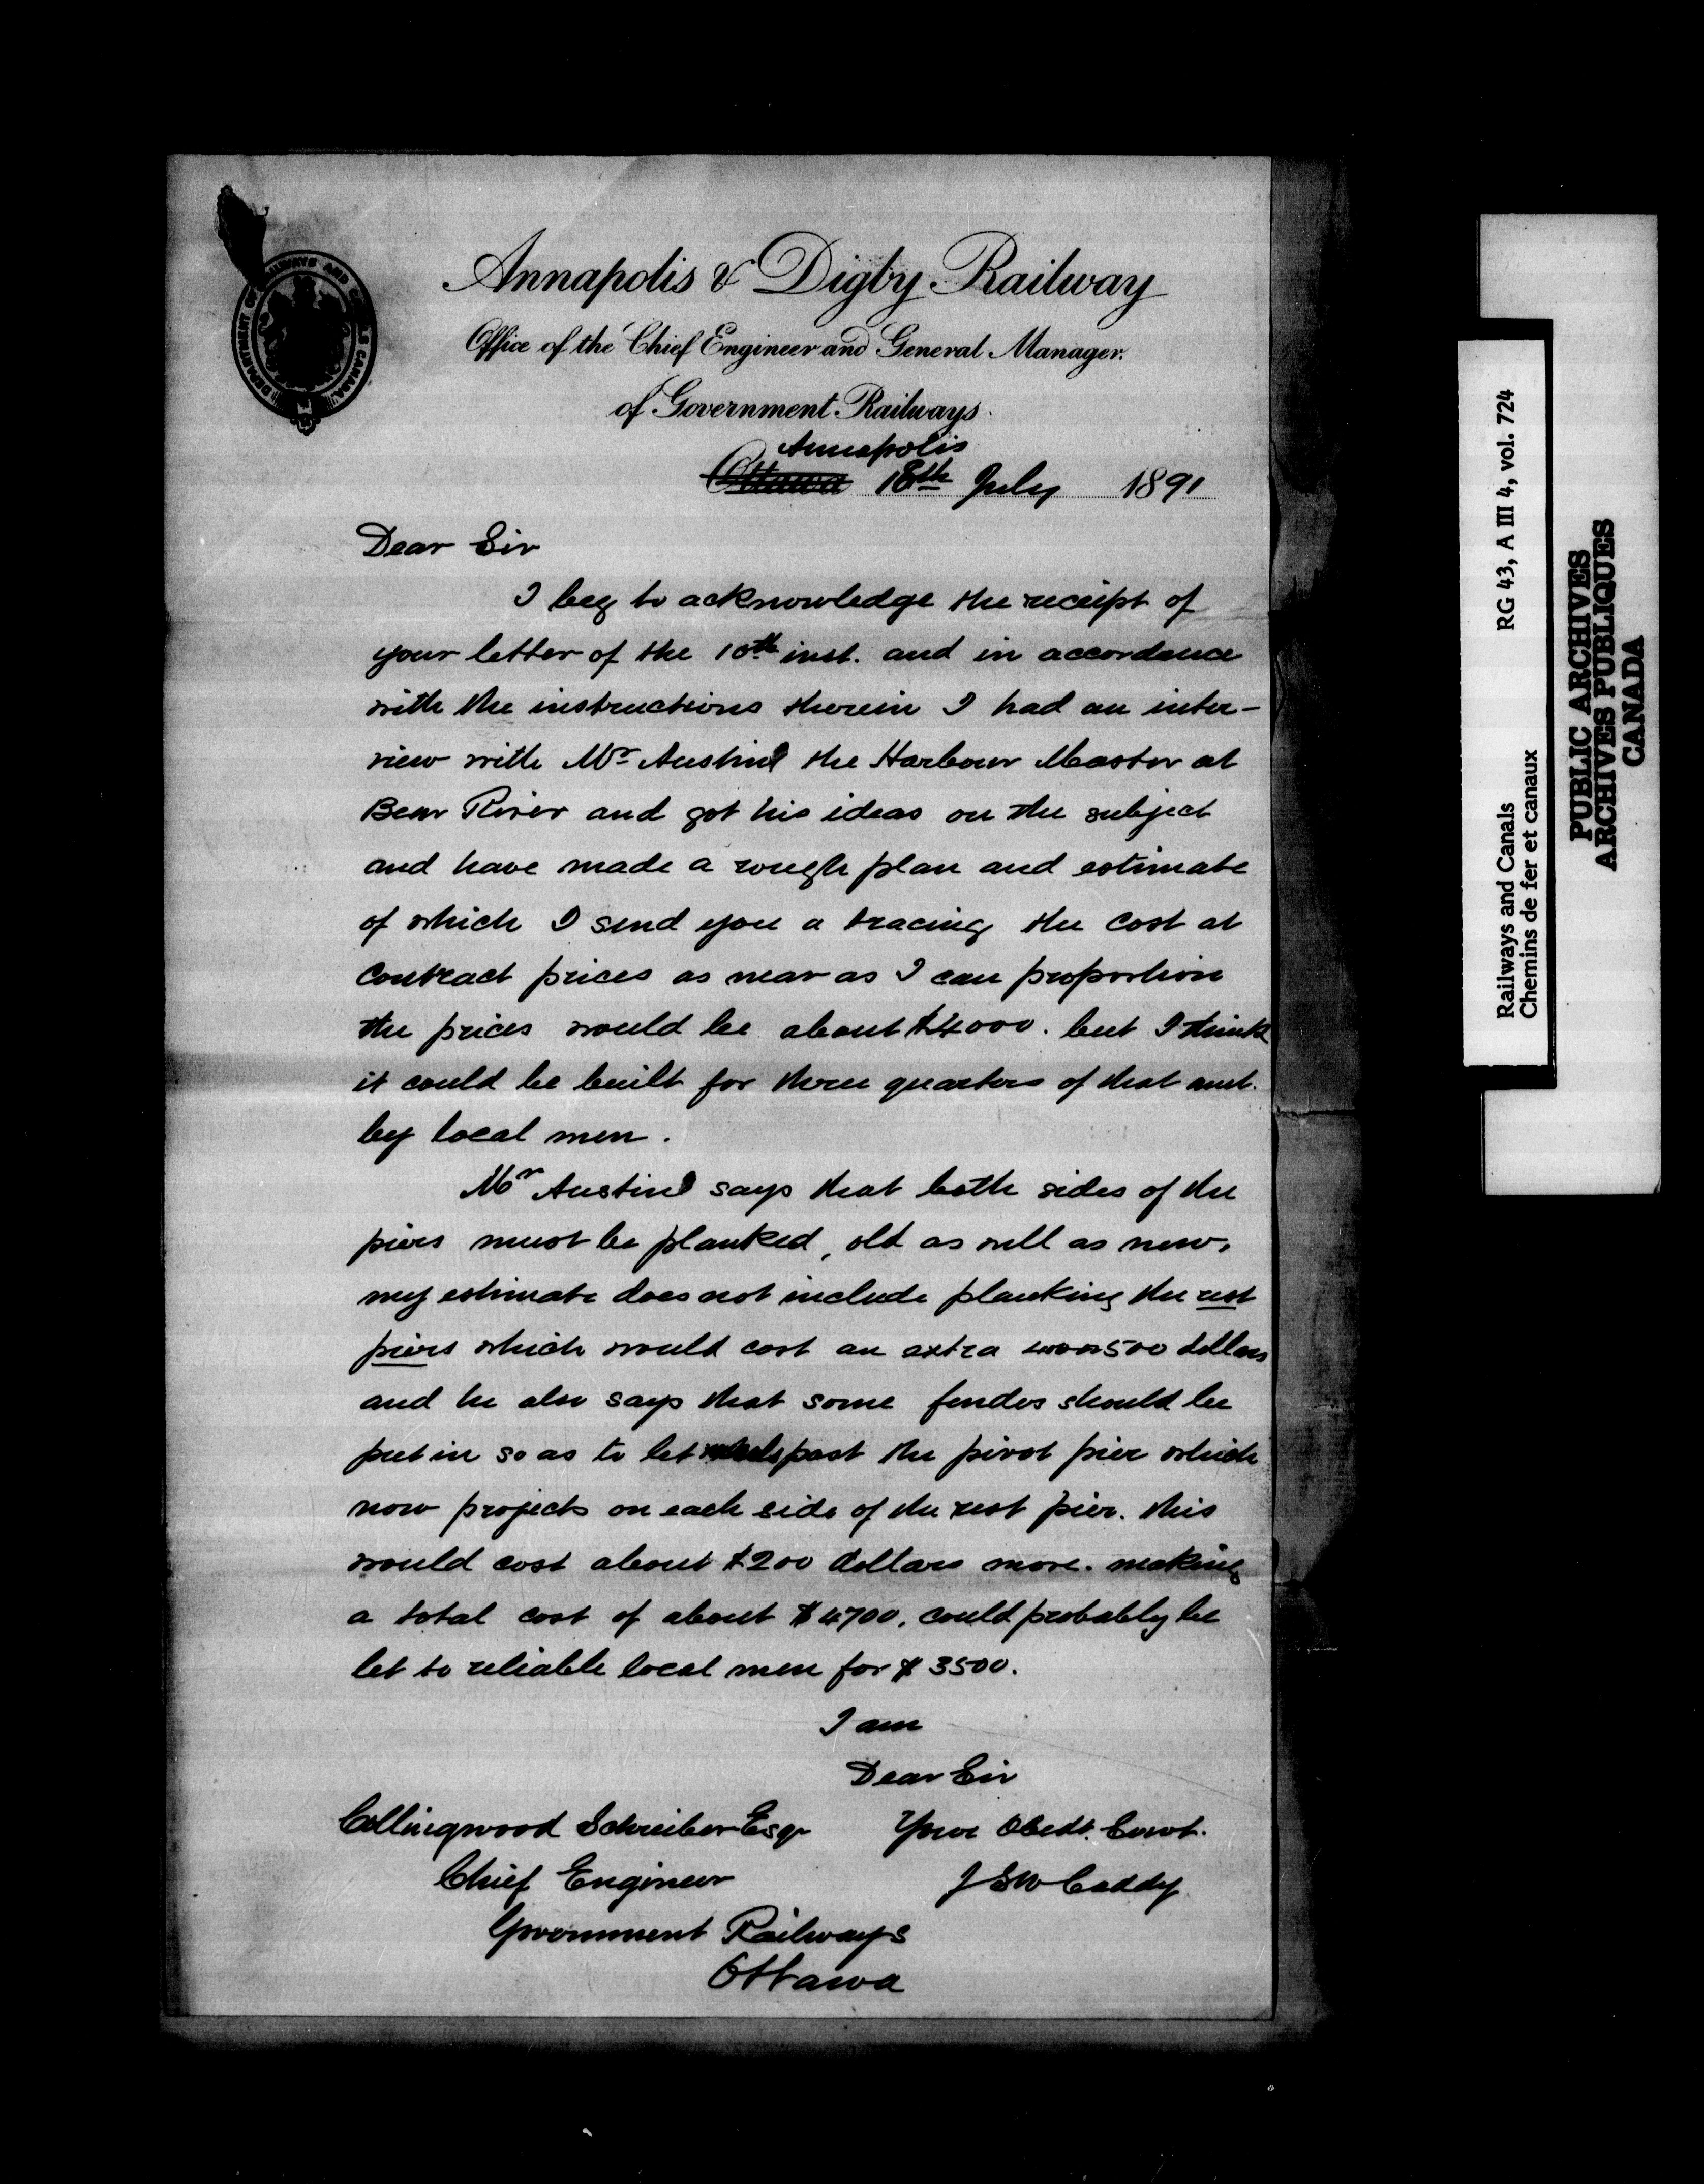 Annapolis & Digby Railway
Office of the Chief Engineer and General Manager.
of Government Railways.
Annapolis
Ottawa 18th July 1891
DEPARTMENT OF RAILWAYS AND CANALS CANADA
Dear Sir
I beg to acknowledge the receipt of
your letter of the 10th inst. and in accordance
with the instructions therein I had an inter-
view with Mr Austin the Harbour Master at
Bear River and got his ideas on the subject
and have made a rough plan and estimate
of which I send you a tracing the cost at
contract prices as near as I can proportion
the prices would be about $4000. but I think
it could be built for three quarters of that amt.
by local men.
Mr Austin says that both sides of the
piers must be planked, old as well as new.
my estimate does not include planking the rest
piers which would cost an extra 500 dollars
and he also says that some fenders should be
put in so as to let past the pivot pier which
now projects on each side of the rest pier. this
would cost about $200 dollars more. making
a total cost of about $4700. could probably be
let to reliable local men for $3500.
I am
Dear Sir
Your Obedt. Servt.
J S W Caddy
Collingwood Schreiber Esqr
Chief Engineer
Government Railways
Ottawa
Railways and Canals RG 43, A III 4, vol. 724
Chemins de fer et canaux
PUBLIC ARCHIVES
ARCHIVES PUBLIQUES
CANADA